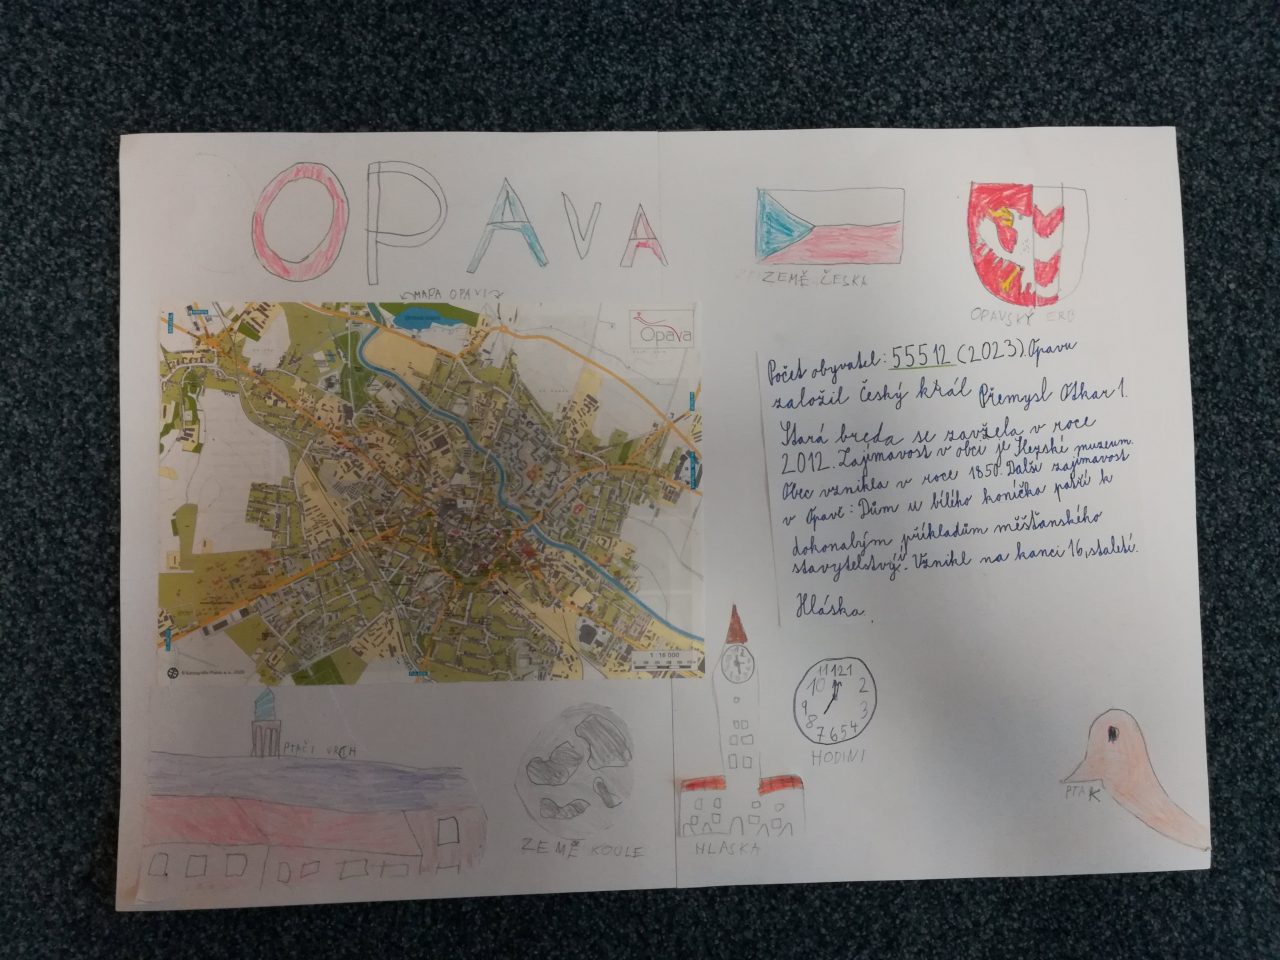 OPAVA
MAPA OPAVI
Opava
1 : 16 000
ZEMĚ ČESKA
OPAVSKÝ ERB
Počet obyvatel: 55512 (2023). Opavu
založil český král Přemysl Otkar 1.
Stará breda se zavžela v roce
2012. Zajímavost v obci je Slezské muzeum.
Obec vznikla v roce 1850. Další zajímavost
v Opavě: Dům u bílého koníčka patří k
dokonalým příkladům měšťanského
stavytelství. Vznikl na kanci 16, staletí.
Hláska.
11 12 1
10 2
9 3
8 7 6 5 4
HODINI
PTAČI VRCH
ZEMĚ KOULE
HLASKA
PTAK